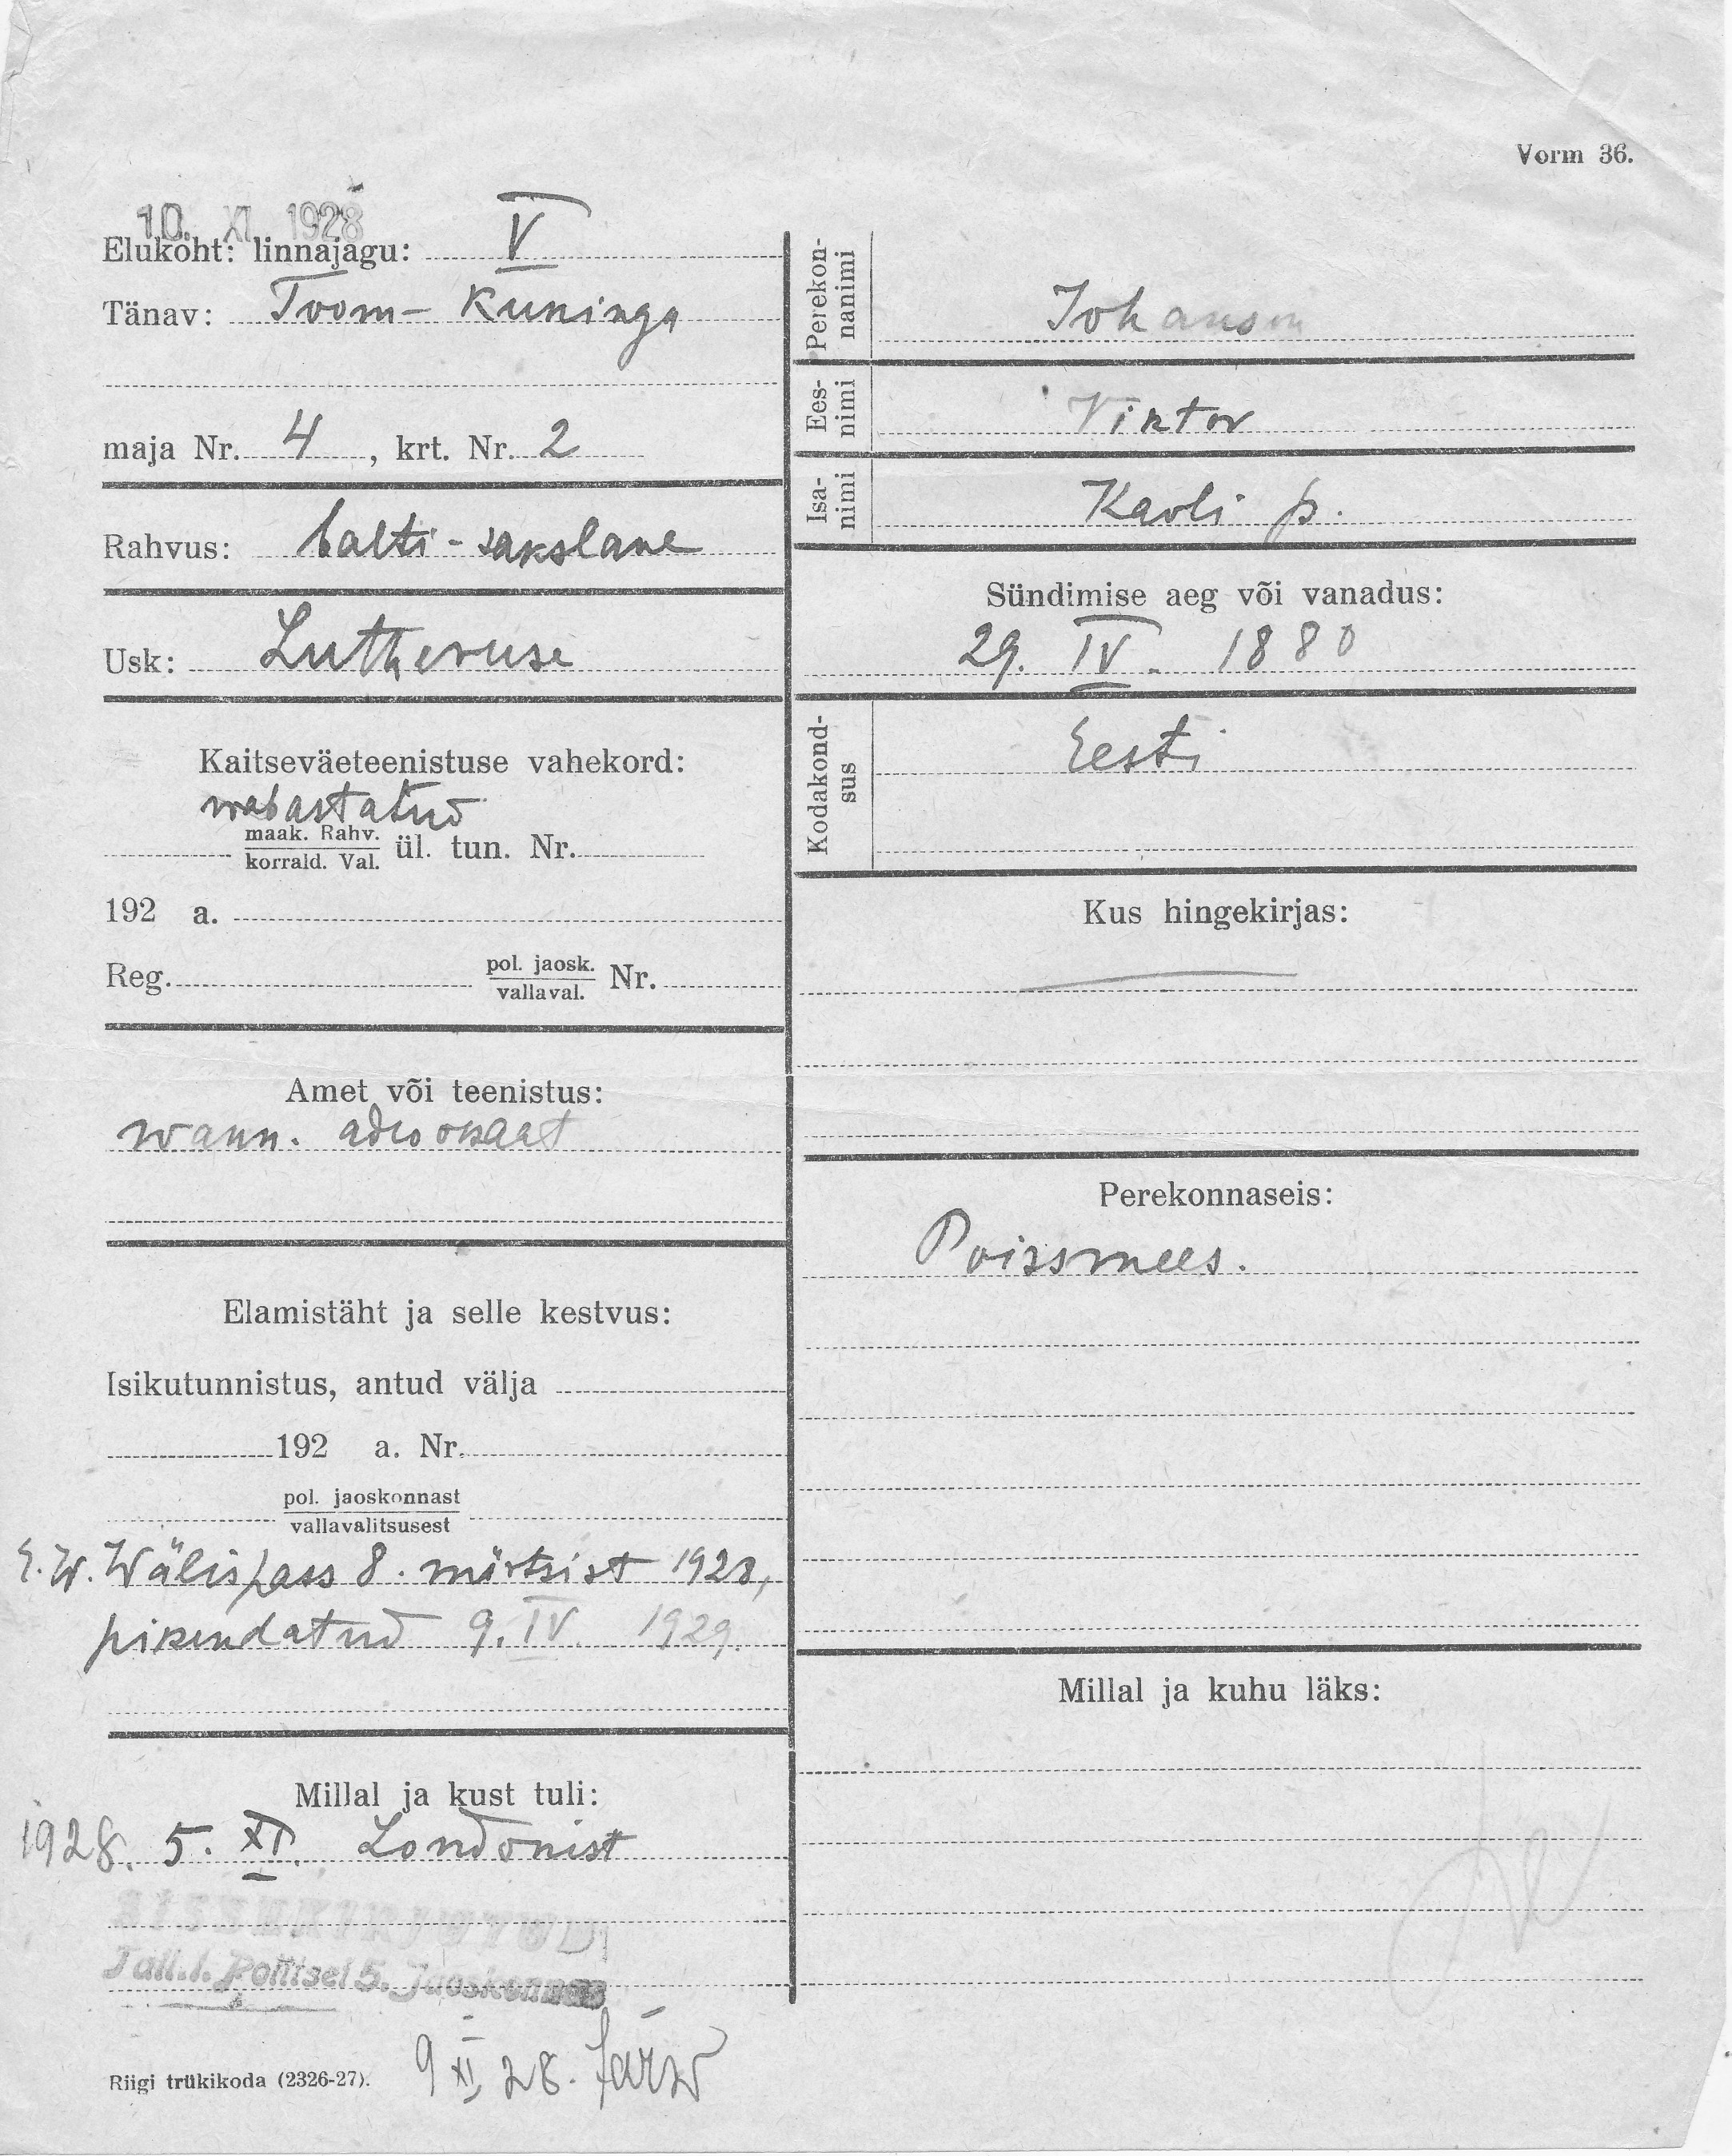 Vorm 36.
10. XI. 1928
Elukoht: linnajagu: V
Tänav: Toom-Kuninga
maja Nr. 4, krt. Nr. 2
Rahvus: balti-sakslane
Usk: Lutheruse
Kaitseväeteenistuse vahekord:
wabastatud
maak. Rahv.
korrald. Val.
ül. tun. Nr.
192 a.
Reg. pol. jaosk. Nr.
vallaval.
Amet või teenistus:
wann. adwokaat
Elamistäht ja selle kestvus:
Isikutunnistus, antud välja
192 a. Nr.
pol. jaoskonnast
vallavalitsusest
E.W. Wälispass 8. märtsist 1928,
pikendatud 9. IV. 1929.
Millal ja kust tuli:
1928. 5. XI. Londonist
SISSEKIRJUTUD
Tall. l. Politsei 5. Jaoskonnas
9 XI 28.
Riigi trükikoda (2326-27).
Perekon-
nanimi
Johanson
Ees-
nimi
Viktor
Isa-
nimi
Karli p.
Sündimise aeg või vanadus:
29. IV. 1880
Kodakond-
sus
Eesti
Kus hingekirjas:
Perekonnaseis:
Poissmees.
Millal ja kuhu läks: